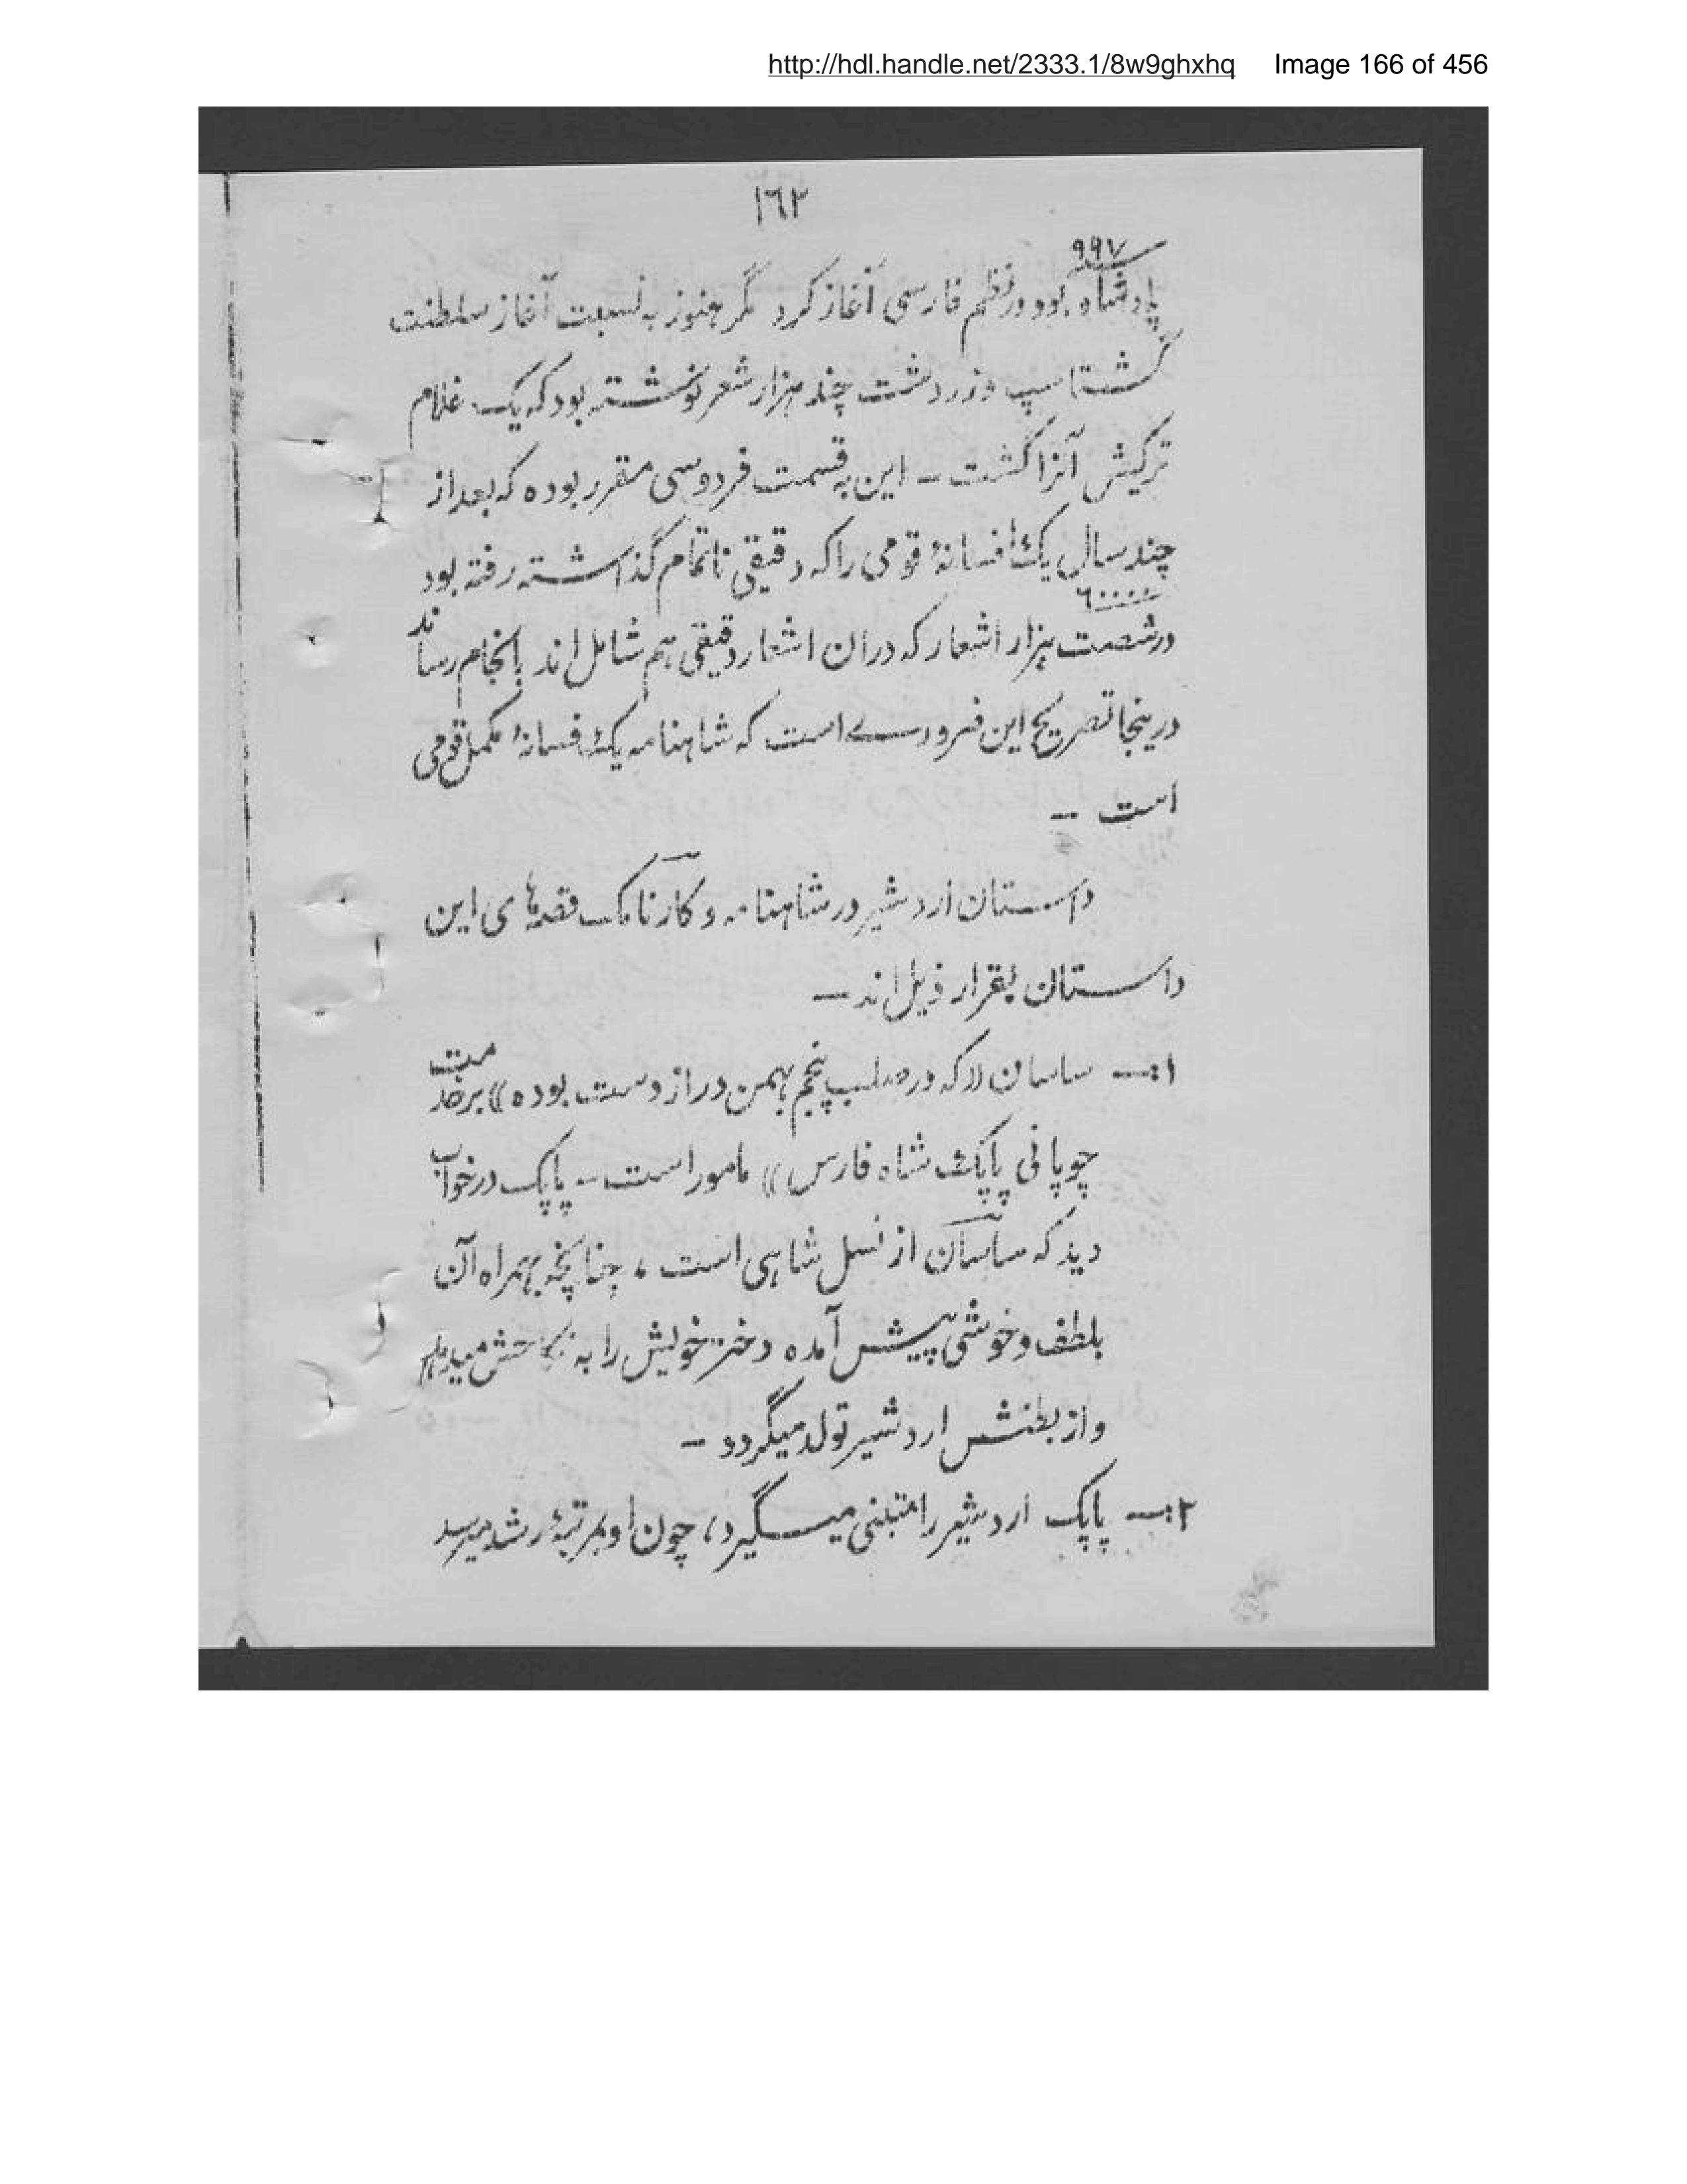 http://hdl.handle.net/2333.1/8w9ghxhq Image 166 of 456
١٦٢
٩٩٧
پادشاه بود در نظم فارسی آغاز کرد مگر هنوز به نسبت آغاز سلطنت
گشتاسپ و زردشت چند هزار شعر نوشته بود که یک غلام
ترکیش آنرا کشت – این به قسمت فردوسی مقرر بوده که بعد از
چند سال یک افسانهٔ قومی را که دقیقی ناتمام گذاشته رفته بود
٦٠٠٠٠
در شصت هزار اشعار که دران اشعار دقیقی هم شامل اند بانجام رساند
درینجا تصریح این ضروری است که شاهنامه یک افسانهٔ مکمل قومی
است –
داستان اردشیر در شاهنامه و کارنامک قصه های این
داستان بقرار ذیل اند –
۱:– ساسان ((که در صلب پنجم بهمن دراز دست بوده)) برخدمت
چوپانی پاپک شاه فارس)) مامور است – پاپک در خواب
دید که ساسان از نسل شاهی است، چنانچه بهمراه آن
بلطف و خوشی پیش آمده دختر خویش را به نکاحش میدهد
و از بطنش اردشیر تولد میگردد –
۲:– پاپک اردشیر را متبنی میگیرد، چون او بمرتبهٔ رشد میرسد